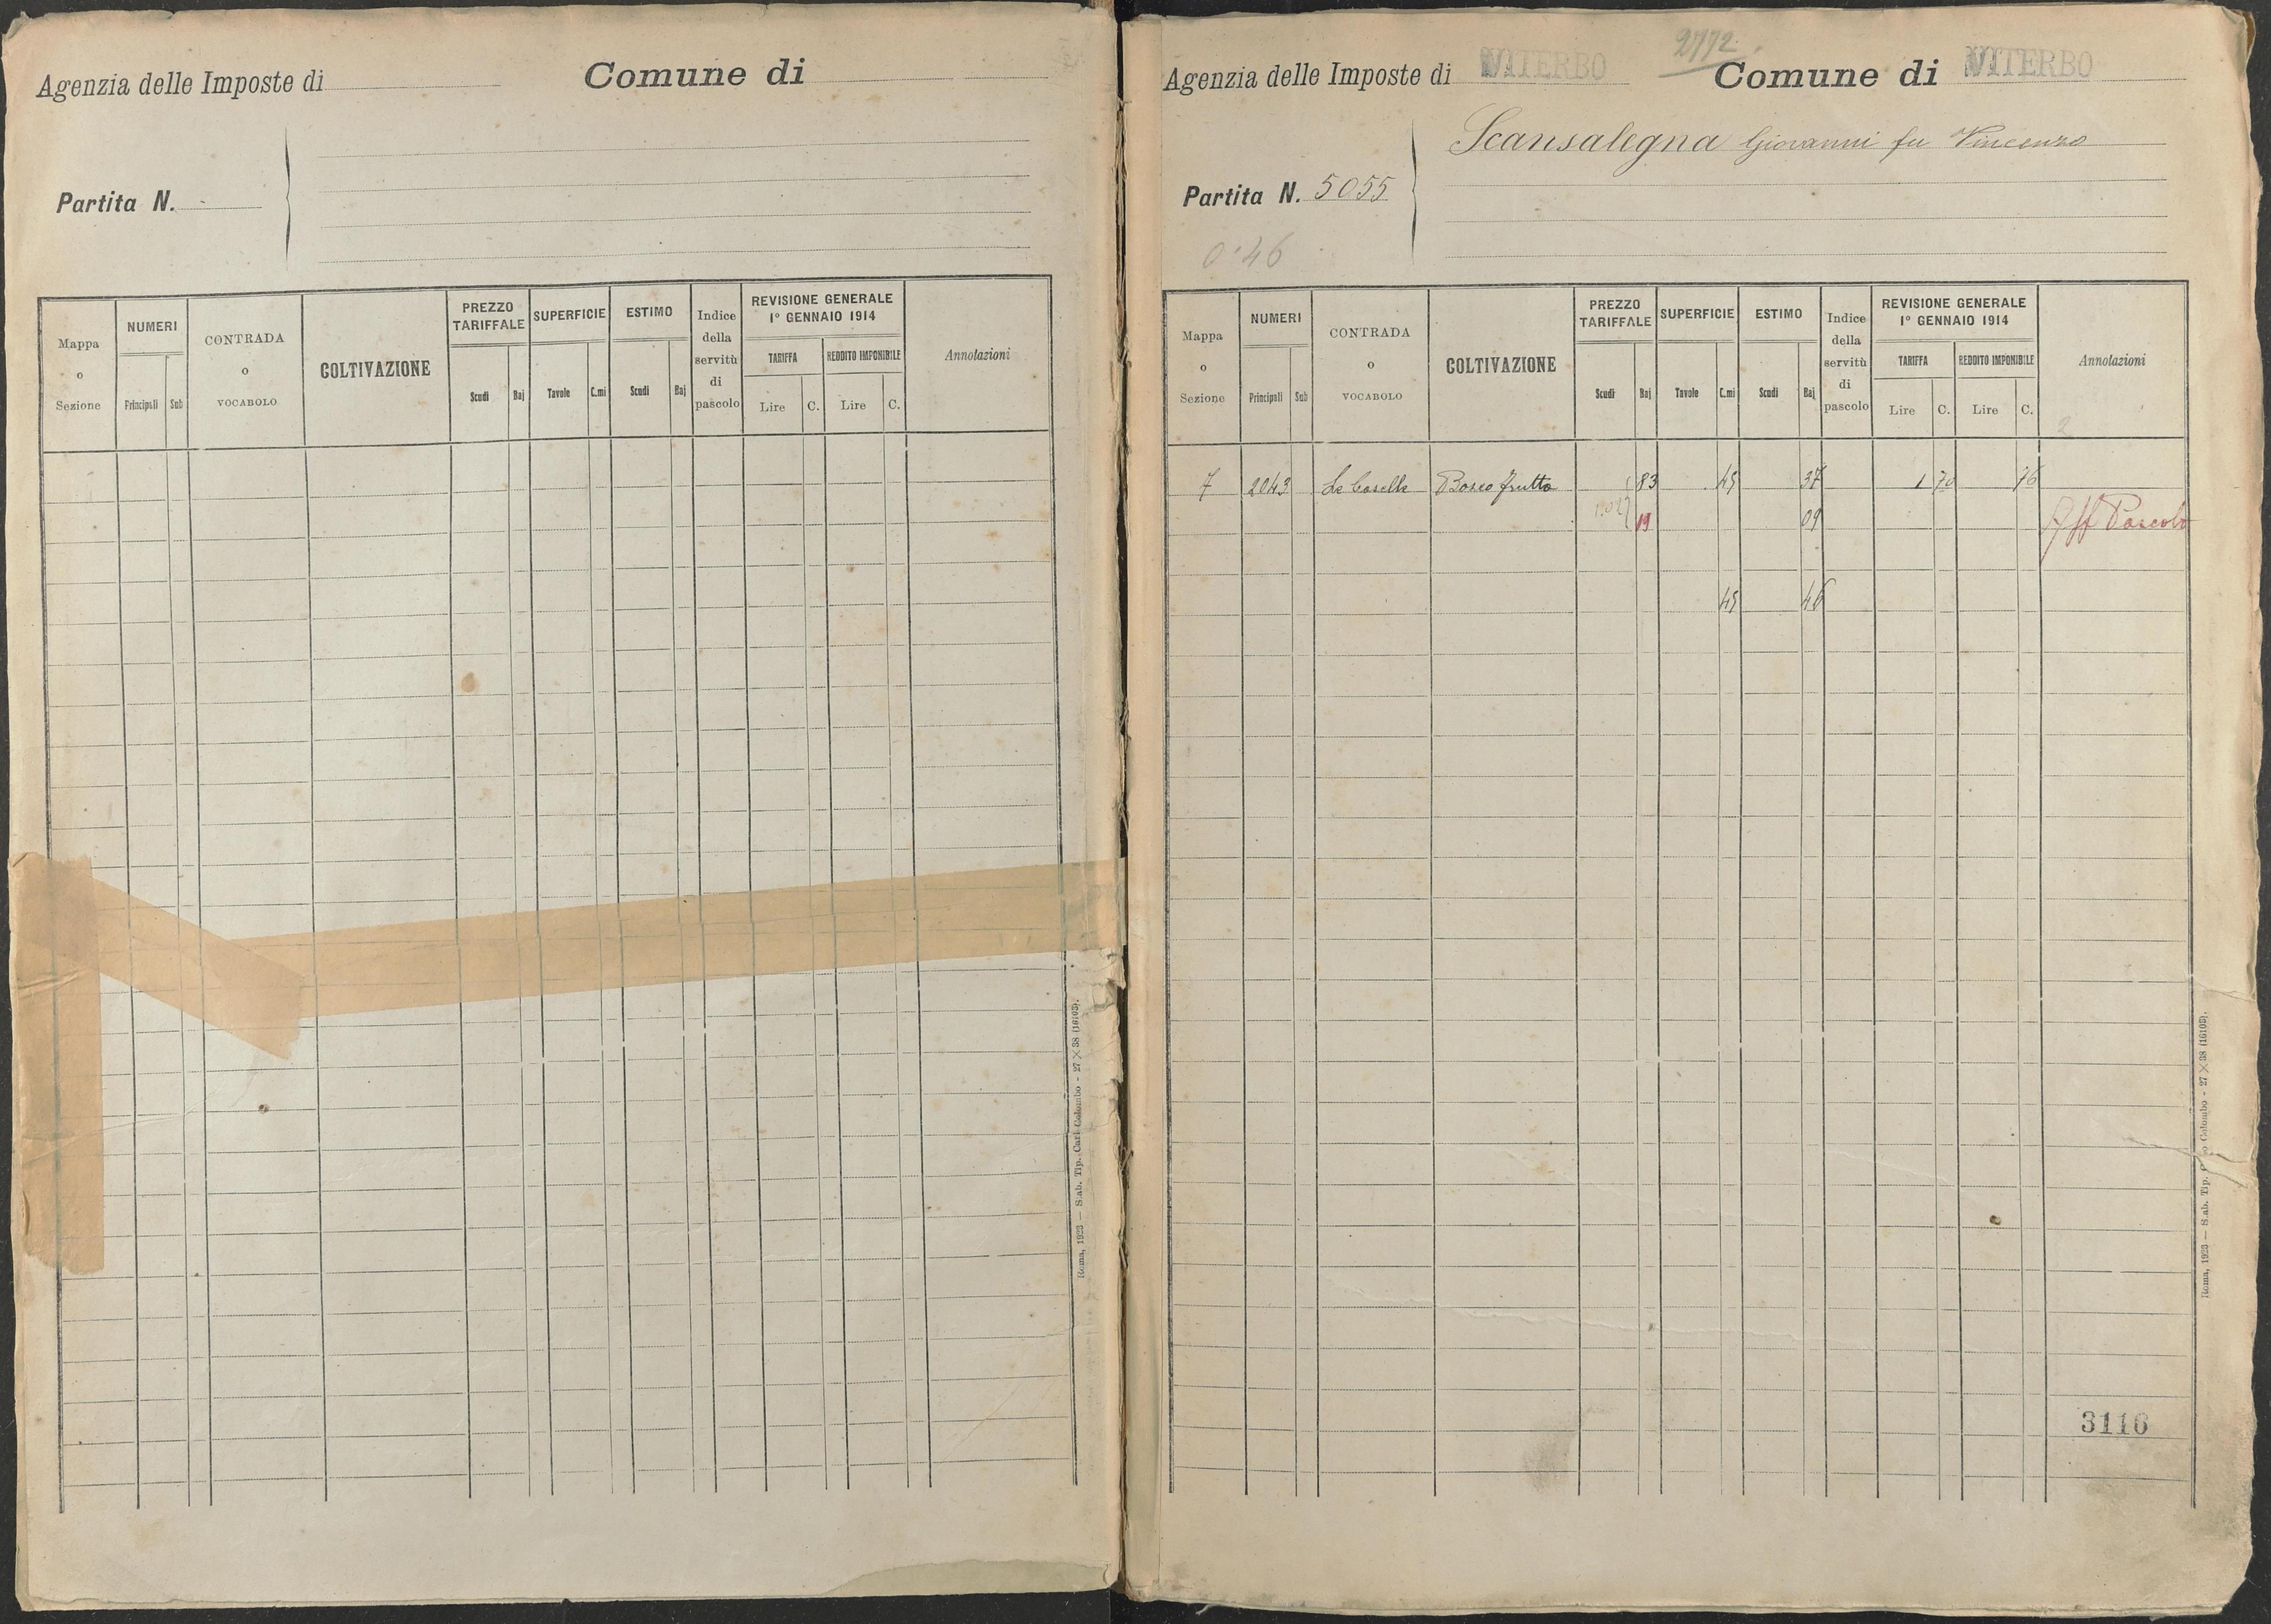 Agenzia delle Imposte di
Comune di
Partita N.
Mappa o Sezione
NUMERI
Principali
Sub
CONTRADA o VOCABOLO
COLTIVAZIONE
PREZZO TARIFFALE
Scudi
Baj
SUPERFICIE
Tavole
C.mi
ESTIMO
Scudi
Baj
Indice della servitù di pascolo
REVISIONE GENERALE 1º GENNAIO 1914
TARIFFA
Lire
C.
REDDITO IMPONIBILE
Lire
C.
Annotazioni
Roma, 1923 — S.ab. Tip. Carl Colombo - 27×38 (16103).
2772
Agenzia delle Imposte di VITERBO
Comune di VITERBO
Scansalegna Giovanni fu Vincenzo
Partita N. 5055
0.46
Mappa o Sezione
NUMERI
Principali
Sub
CONTRADA o VOCABOLO
COLTIVAZIONE
PREZZO TARIFFALE
Scudi
Baj
SUPERFICIE
Tavole
C.mi
ESTIMO
Scudi
Baj
Indice della servitù di pascolo
REVISIONE GENERALE 1º GENNAIO 1914
TARIFFA
Lire
C.
REDDITO IMPONIBILE
Lire
C.
Annotazioni
2
7 2043 Le Caselle Bosco frutto 83 45 37 1 70 76
19 09 Aff Pascolo
45 46
3116
Roma, 1923 — S.ab. Tip. Colombo - 27×38 (16103).